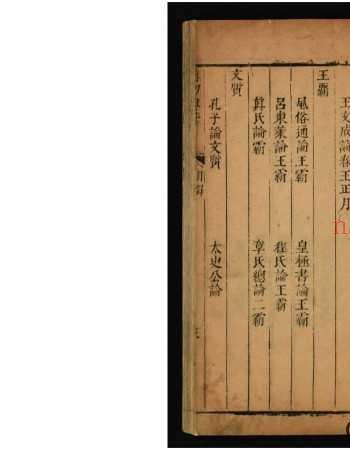 王文成論春王正月
王霸
風俗通論王霸 皇極書論王霸
呂東萊論王霸 程氏論王霸
薛氏論霸 章氏總論二霸
文質
孔子論文質 太史公論
目録